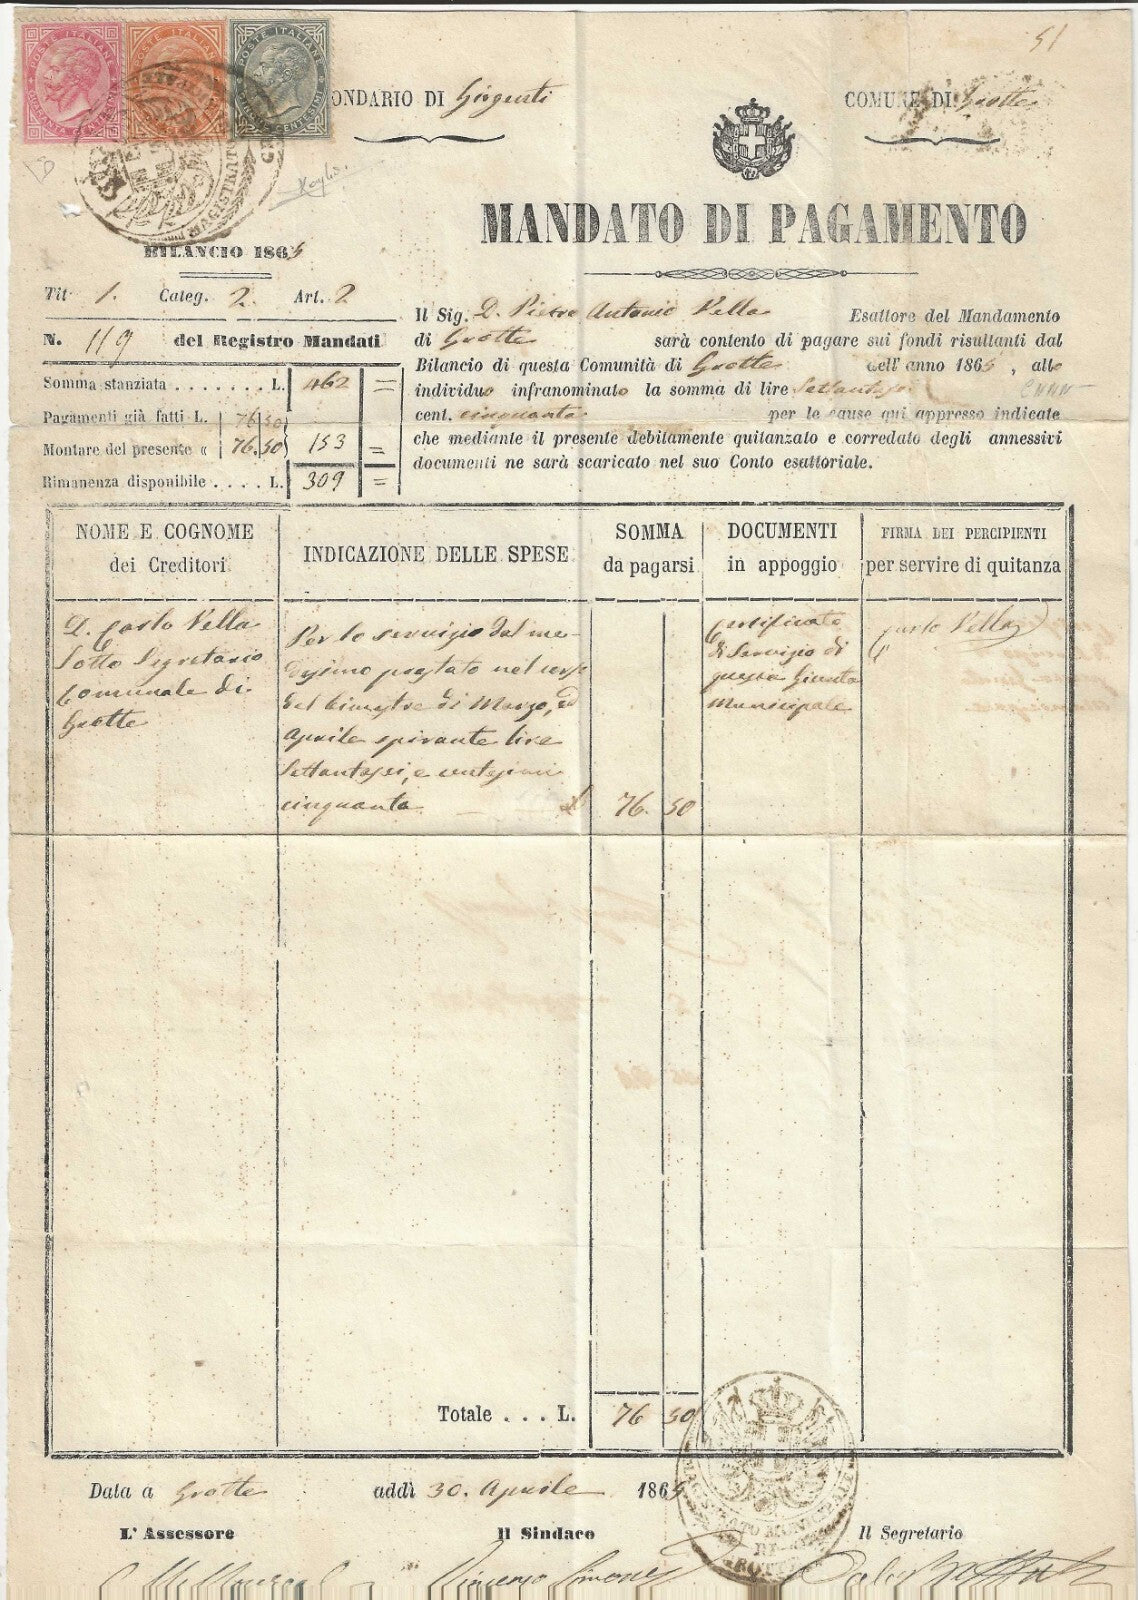 POSTE ITALIANE
POSTE ITALIANE
POSTE ITALIANE
51
ONDARIO DI Girgenti
COMUNE DI Grotte
MANDATO DI PAGAMENTO
BILANCIO 1865
Tit. 1. Categ. 2. Art. 2
N. 119 del Registro Mandati
Somma stanziata . . . . . . . L. 462 =
Pagamenti già fatti L. 76 50
Montare del presente « 76.50 153 =
Rimanenza disponibile . . . . L. 309 =
Il Sig. D. Pietro Antonio Vella Esattore del Mandamento
di Grotte sarà contento di pagare sui fondi risultanti dal
Bilancio di questa Comunità di Grotte dell'anno 1865, allo
individuo infranominato la somma di lire Settantasei
cent. cinquanta per le cause qui appresso indicate
che mediante il presente debitamente quitanzato e corredato degli annessivi
documenti ne sarà scaricato nel suo Conto esattoriale.
NOME E COGNOME
dei Creditori
INDICAZIONE DELLE SPESE
SOMMA
da pagarsi
DOCUMENTI
in appoggio
FIRMA DEI PERCIPIENTI
per servire di quitanza
D. Carlo Vella
Sotto Segretario
Comunale di
Grotte
Per lo servizio dal me-
desimo prestato nel corso
del bimestre di Marzo, ed
Aprile spirante lire
Settantasei, e centesimi
cinquanta
76. 50
Certificato
di Servizio di
questa Giunta
Municipale
Carlo Vella
Totale . . . L. 76 50
Data a Grotte addì 30. Aprile 1865
L'Assessore
Il Sindaco
Il Segretario
Vincenzo Simone